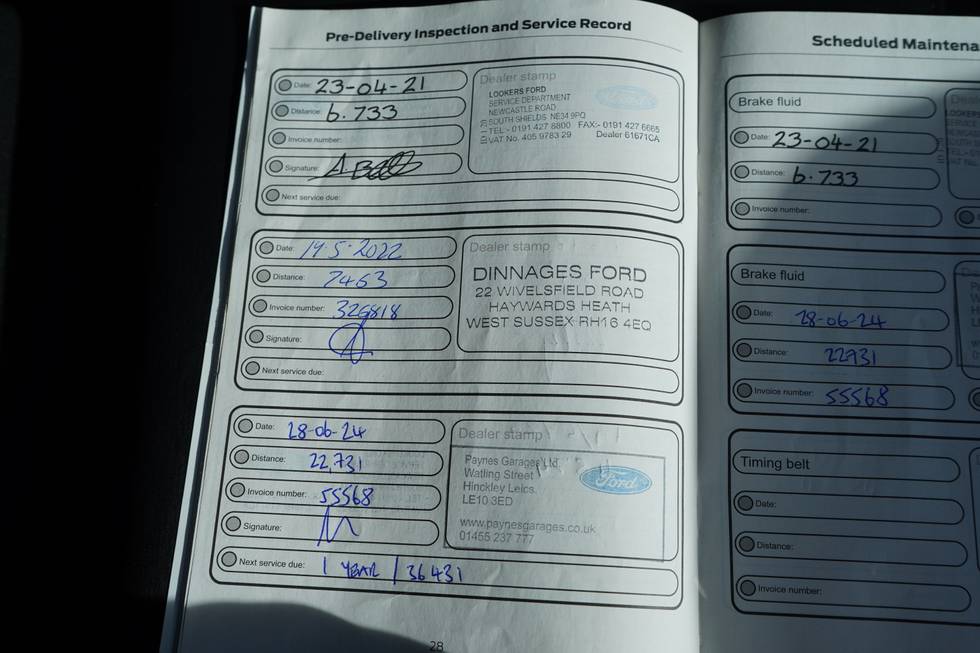 Pre-Delivery Inspection and Service Record
Date: 23-04-21
Distance: 6.733
Invoice number:
Signature:
Next service due:
Dealer stamp
LOOKERS FORD
SERVICE DEPARTMENT
NEWCASTLE ROAD
SOUTH SHIELDS NE34 9PQ
TEL:- 0191 427 8800 FAX:- 0191 427 6665
VAT No. 405 9783 29 Dealer 61671CA
Date: 19.5.2022
Distance: 7463
Invoice number: 326818
Signature:
Next service due:
Dealer stamp
DINNAGES FORD
22 WIVELSFIELD ROAD
HAYWARDS HEATH
WEST SUSSEX RH16 4EQ
Date: 28-06-24
Distance: 22,731
Invoice number: 55568
Signature:
Next service due: 1 YEAR / 36431
Dealer stamp
Paynes Garages Ltd.
Watling Street
Hinckley Leics.
LE10 3ED
Ford
www.paynesgarages.co.uk
01455 237 777
28
Scheduled Maintena
Brake fluid
Date: 23-04-21
Distance: 6.733
Invoice number:
Brake fluid
Date: 28-06-24
Distance: 22731
Invoice number: 55568
Timing belt
Date:
Distance:
Invoice number: